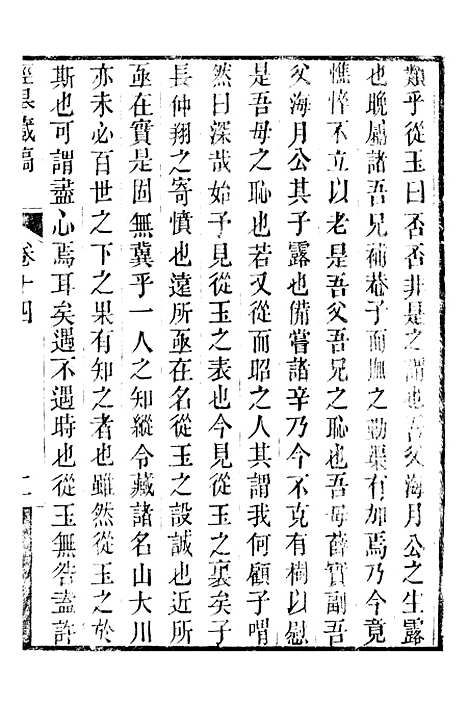 類乎從玉曰否否非是之謂也吾父海月公之生露
也晩屬諸吾兄補菴子而撫之勤渠有加焉乃今竟
憔悴不立以老是吾父吾兄之恥也吾母薛實副吾
父海月公其子露也備嘗諸辛乃今不克有樹以慰
是吾母之恥也若又從而昭之人其謂我何顧子喟
然曰深哉始予見從玉之表也今見從玉之裏矣子
長仲翔之寄憤也遠所亟在名從玉之設誠也近所
亟在實是固無冀乎一人之知縱令藏諸名山大川
亦未必百世之下之果有知之者也雖然從玉之於
斯也可謂盡心焉耳矣遇不遇時也從玉無咎盍許
涇皋藏稿 卷十四 二